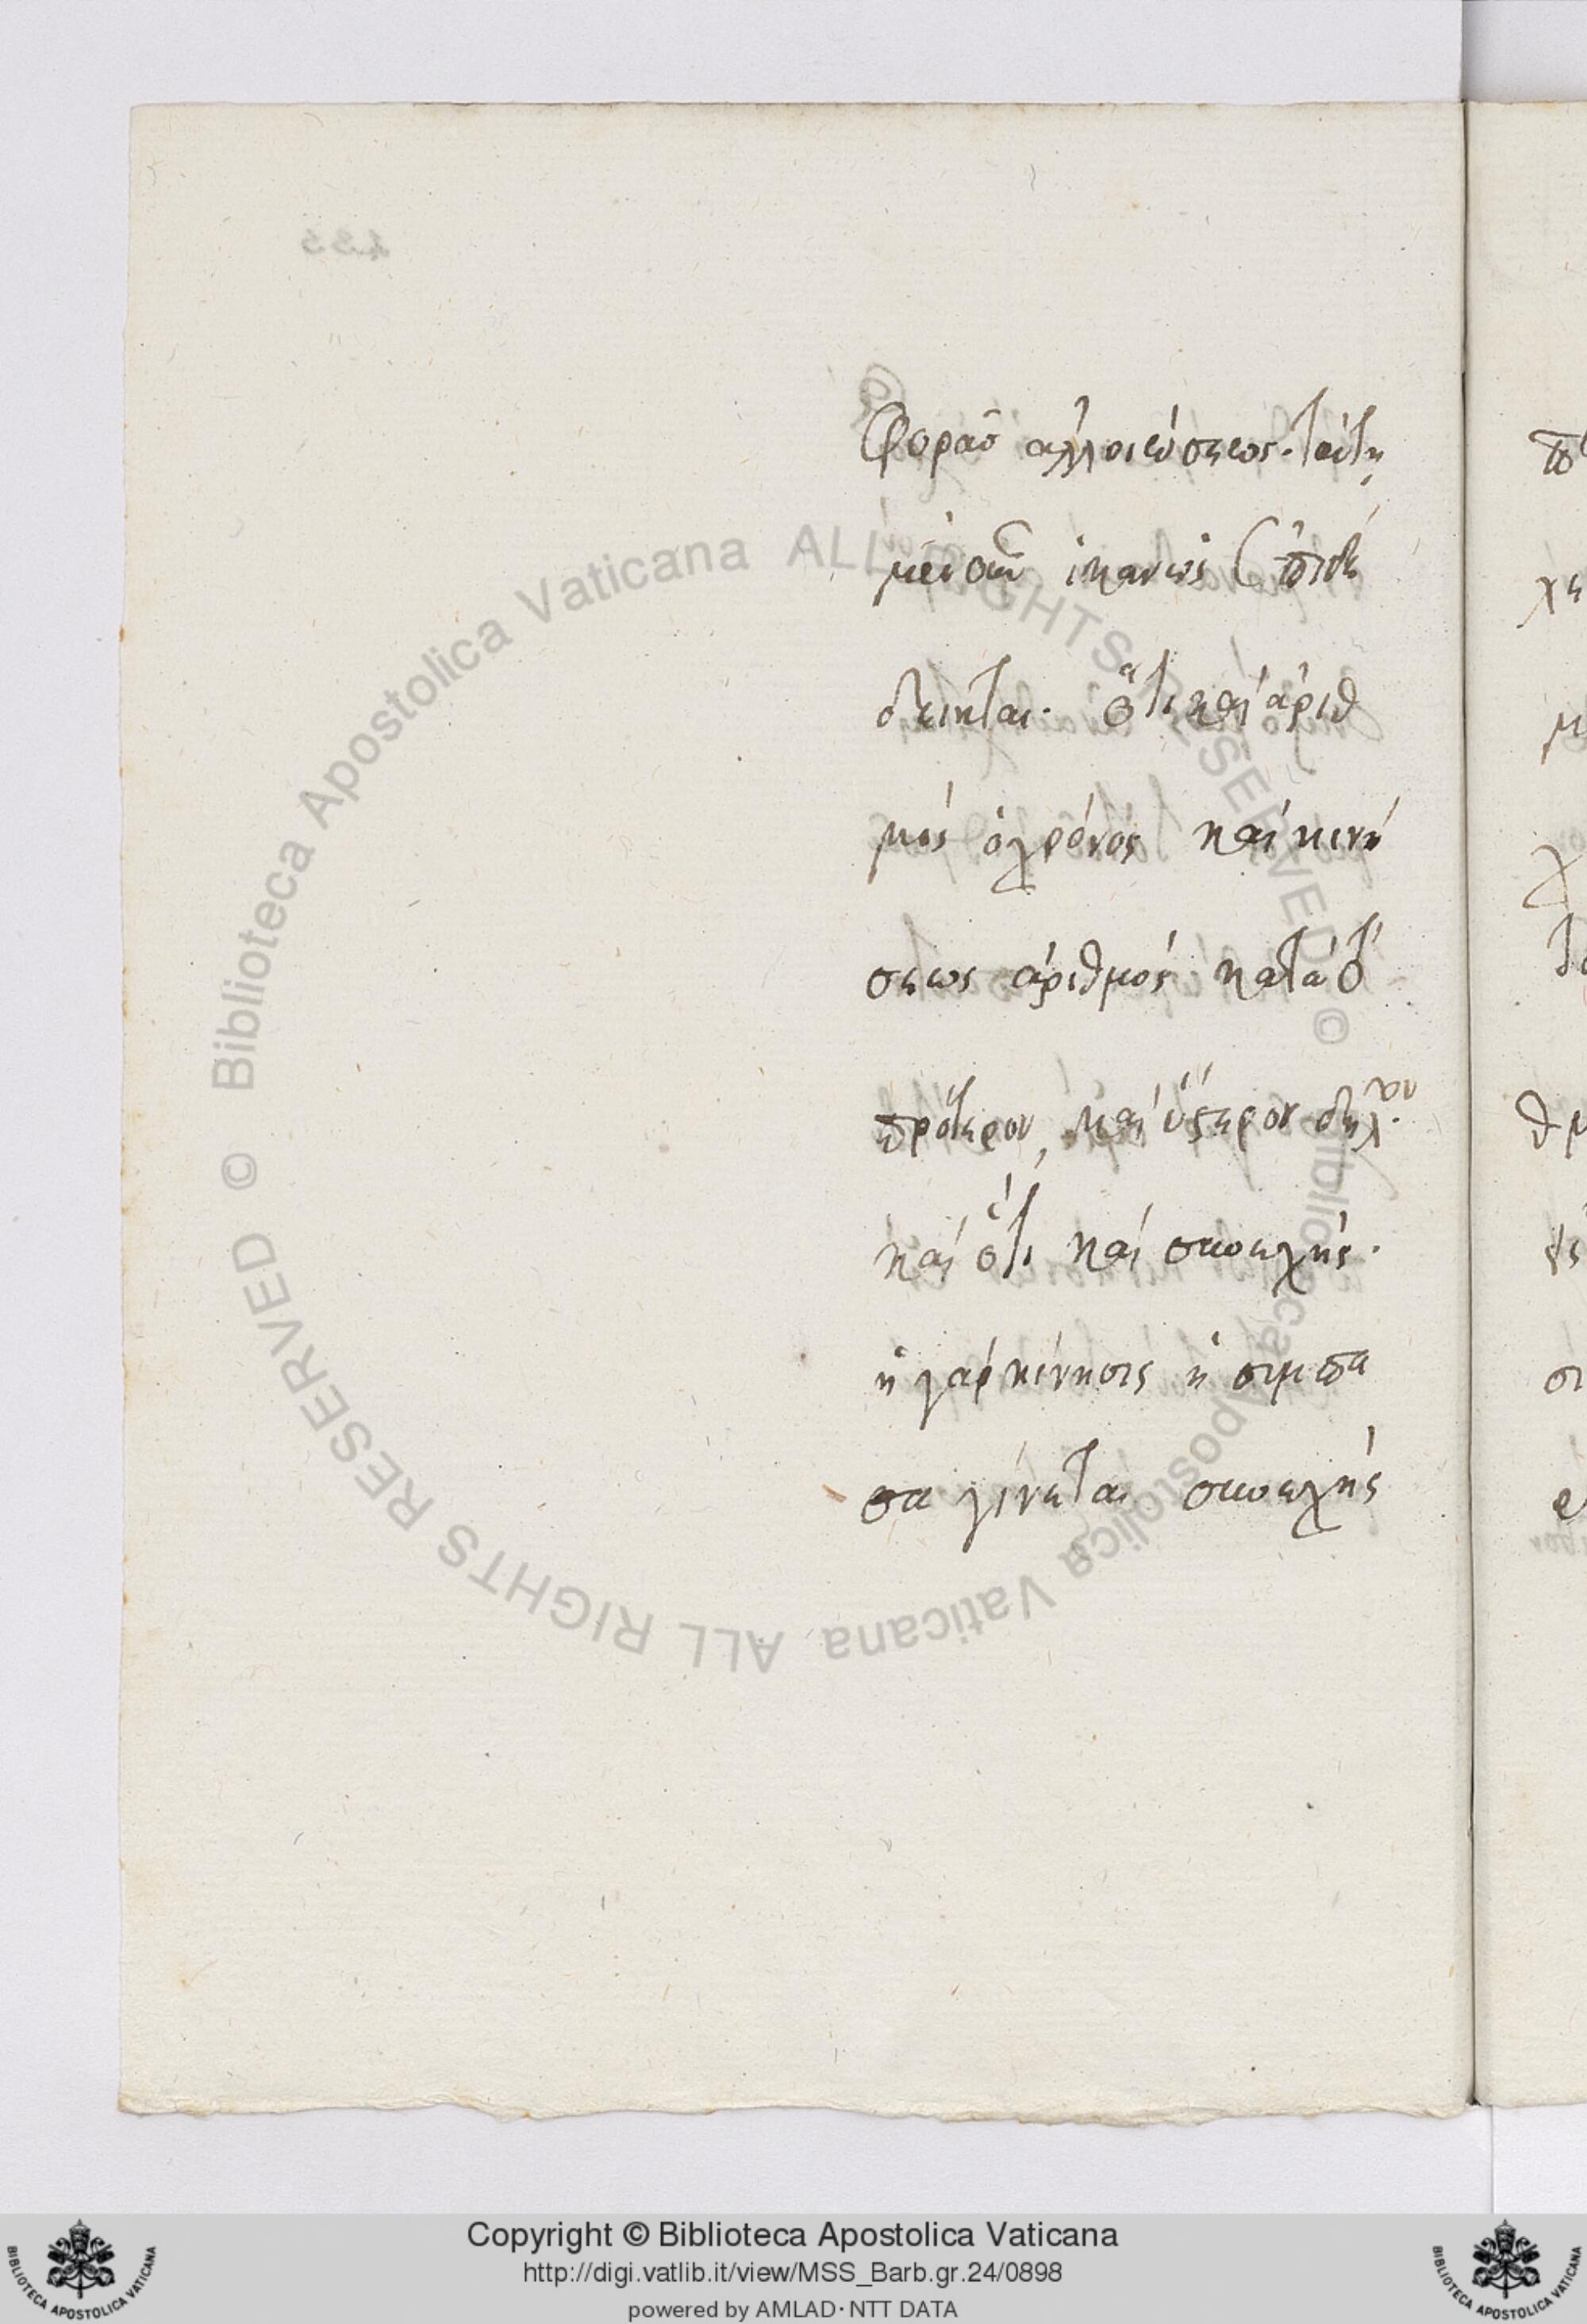 φορᾶσ ἀλλοιώσεως. ταύτῃ
μὲν οὖν ἱκανῶς ἐπιδέ
δεικται. ὅτι καὶ ἀριθ
μός ὁ χρόνος καὶ κινή
σεως ἀριθμός κατὰ τὸ
πρότερον, καὶ ὕστερον δῆλον.
καὶ ὅτι καὶ συνεχής.
ἡ γὰρ κίνησις ἡ σύμπα
σα γίνεται συνεχής
© Biblioteca Apostolica Vaticana ALL RIGHTS RESERVED © Biblioteca Apostolica Vaticana ALL RIGHTS RESERVED
Copyright © Biblioteca Apostolica Vaticana
http://digi.vatlib.it/view/MSS_Barb.gr.24/0898
powered by AMLAD·NTT DATA
BIBLIOTECA APOSTOLICA VATICANA
BIBLIOTECA APOSTOLICA VATICANA